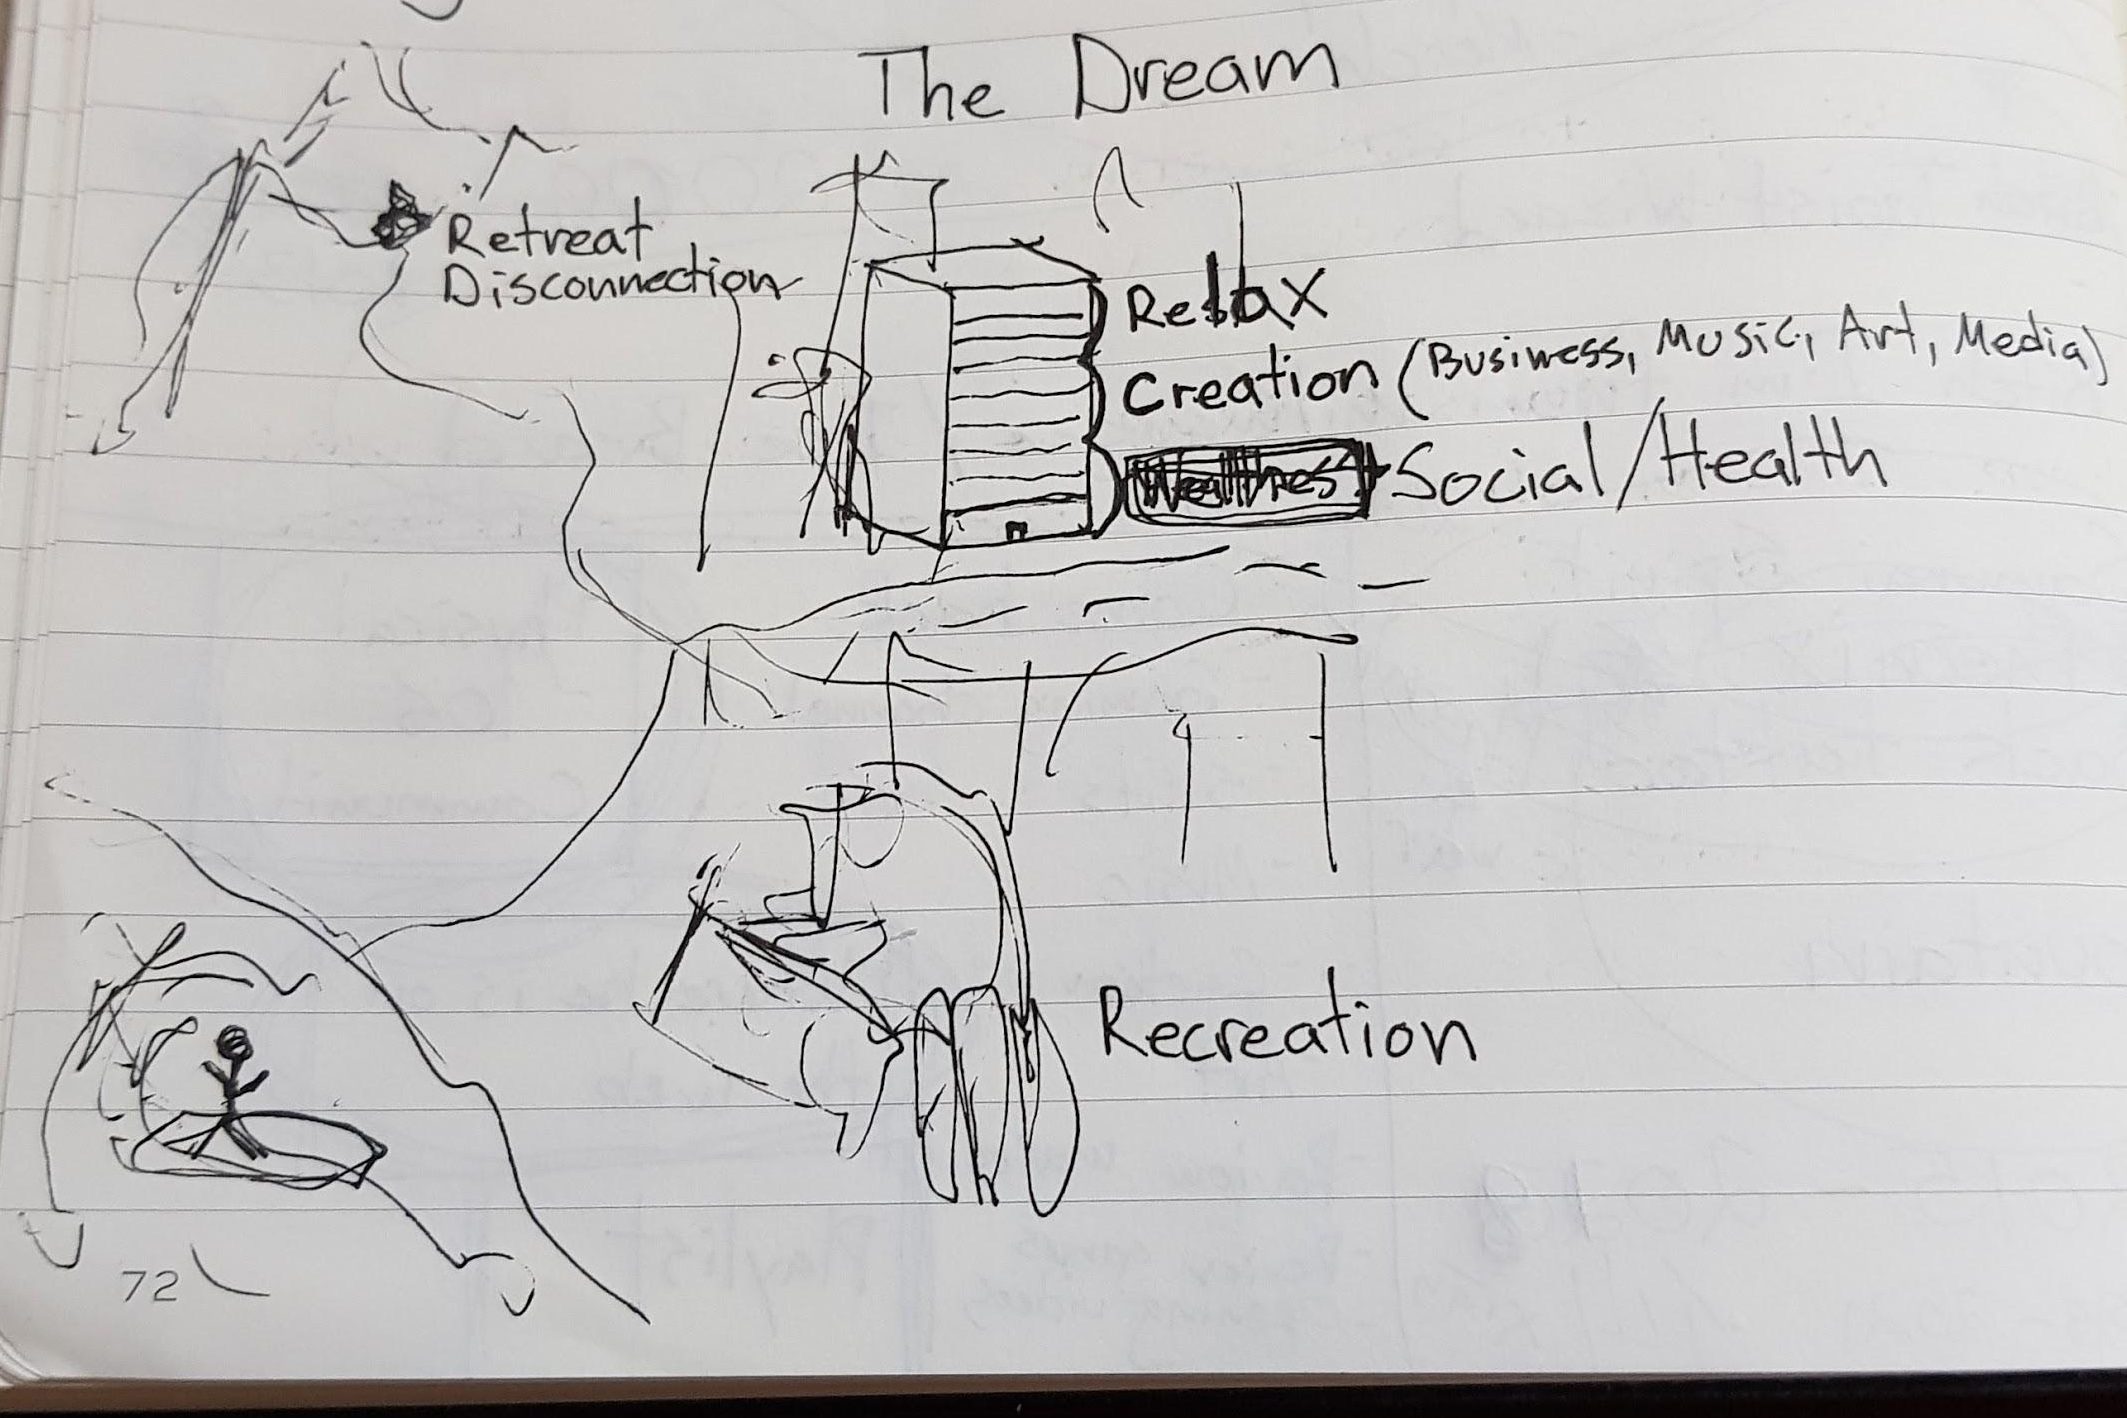 The Dream
Retreat
Disconnection
Relax
Creation (Business, Music, Art, Media)
Social/Health
Recreation
72